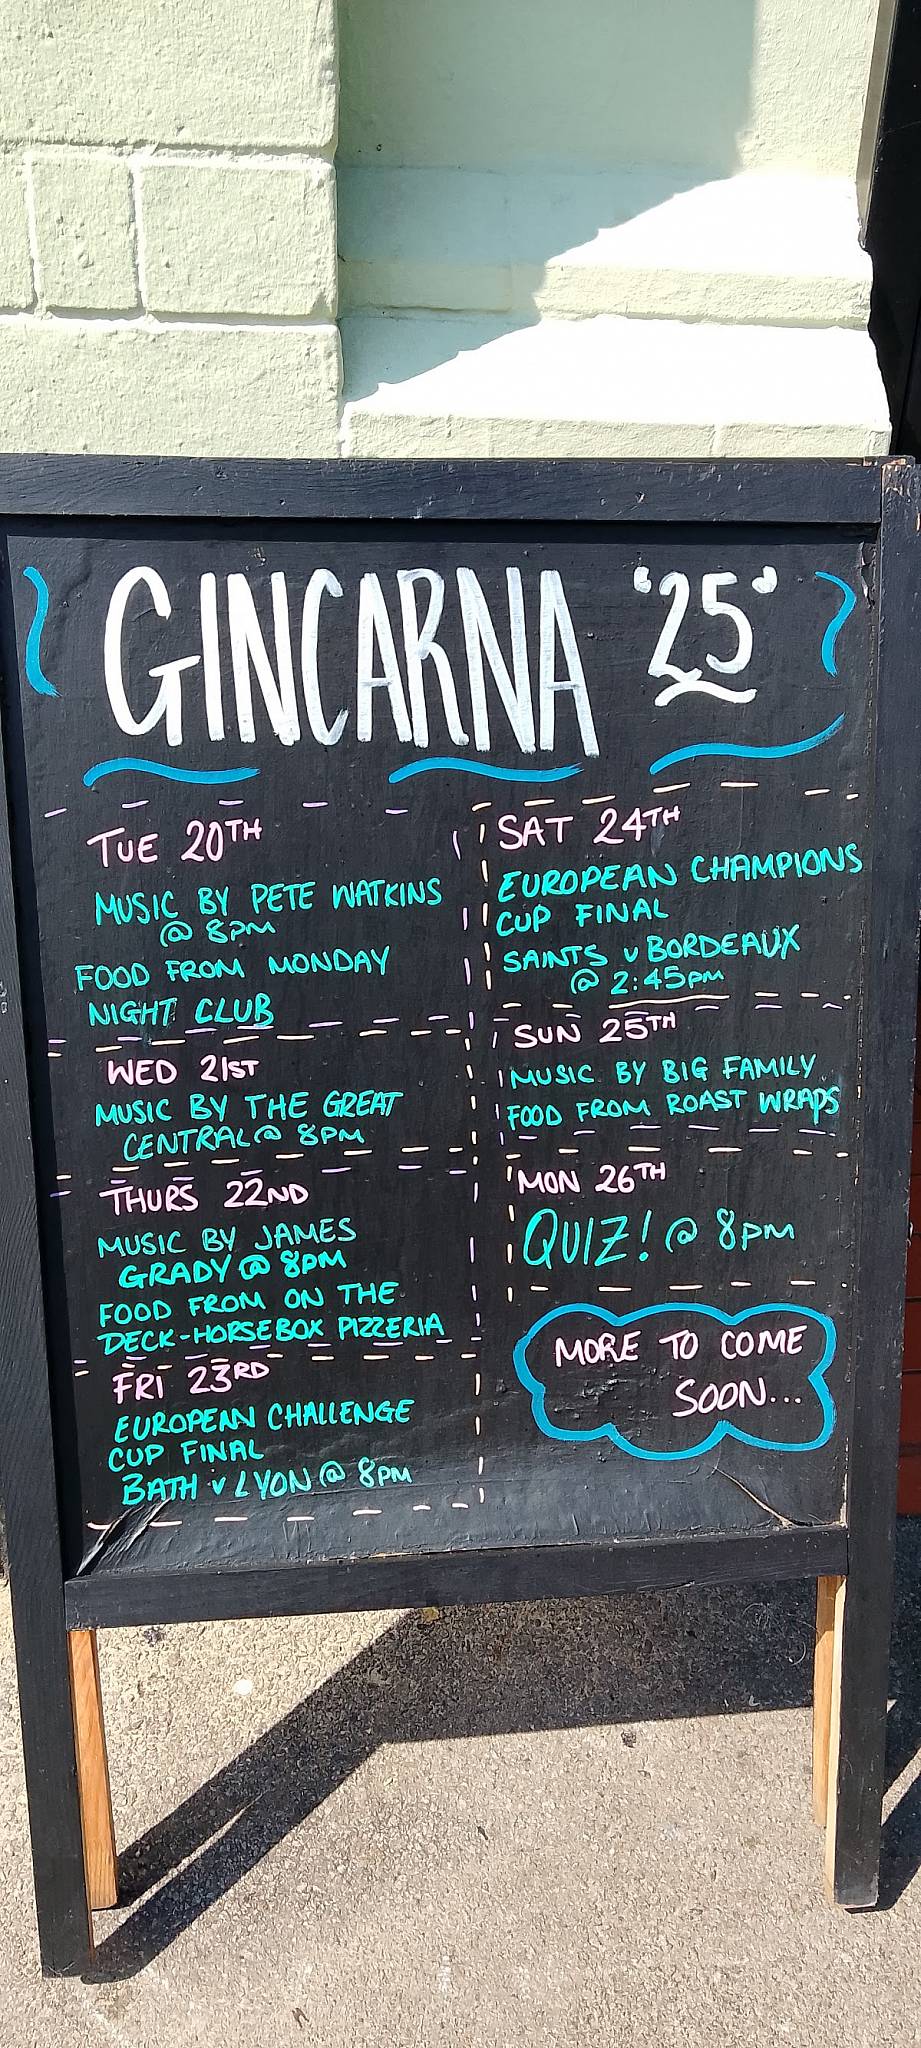 GINCARNA "25"
TUE 20TH
MUSIC BY PETE WATKINS
@ 8PM
FOOD FROM MONDAY
NIGHT CLUB
WED 21ST
MUSIC BY THE GREAT
CENTRAL @ 8PM
THURS 22ND
MUSIC BY JAMES
GRADY @ 8PM
FOOD FROM ON THE
DECK-HORSEBOX PIZZERIA
FRI 23RD
EUROPEAN CHALLENGE
CUP FINAL
BATH v LYON @ 8PM
SAT 24TH
EUROPEAN CHAMPIONS
CUP FINAL
SAINTS v BORDEAUX
@ 2:45PM
SUN 25TH
MUSIC BY BIG FAMILY
FOOD FROM ROAST WRAPS
MON 26TH
QUIZ! @ 8PM
MORE TO COME
SOON...